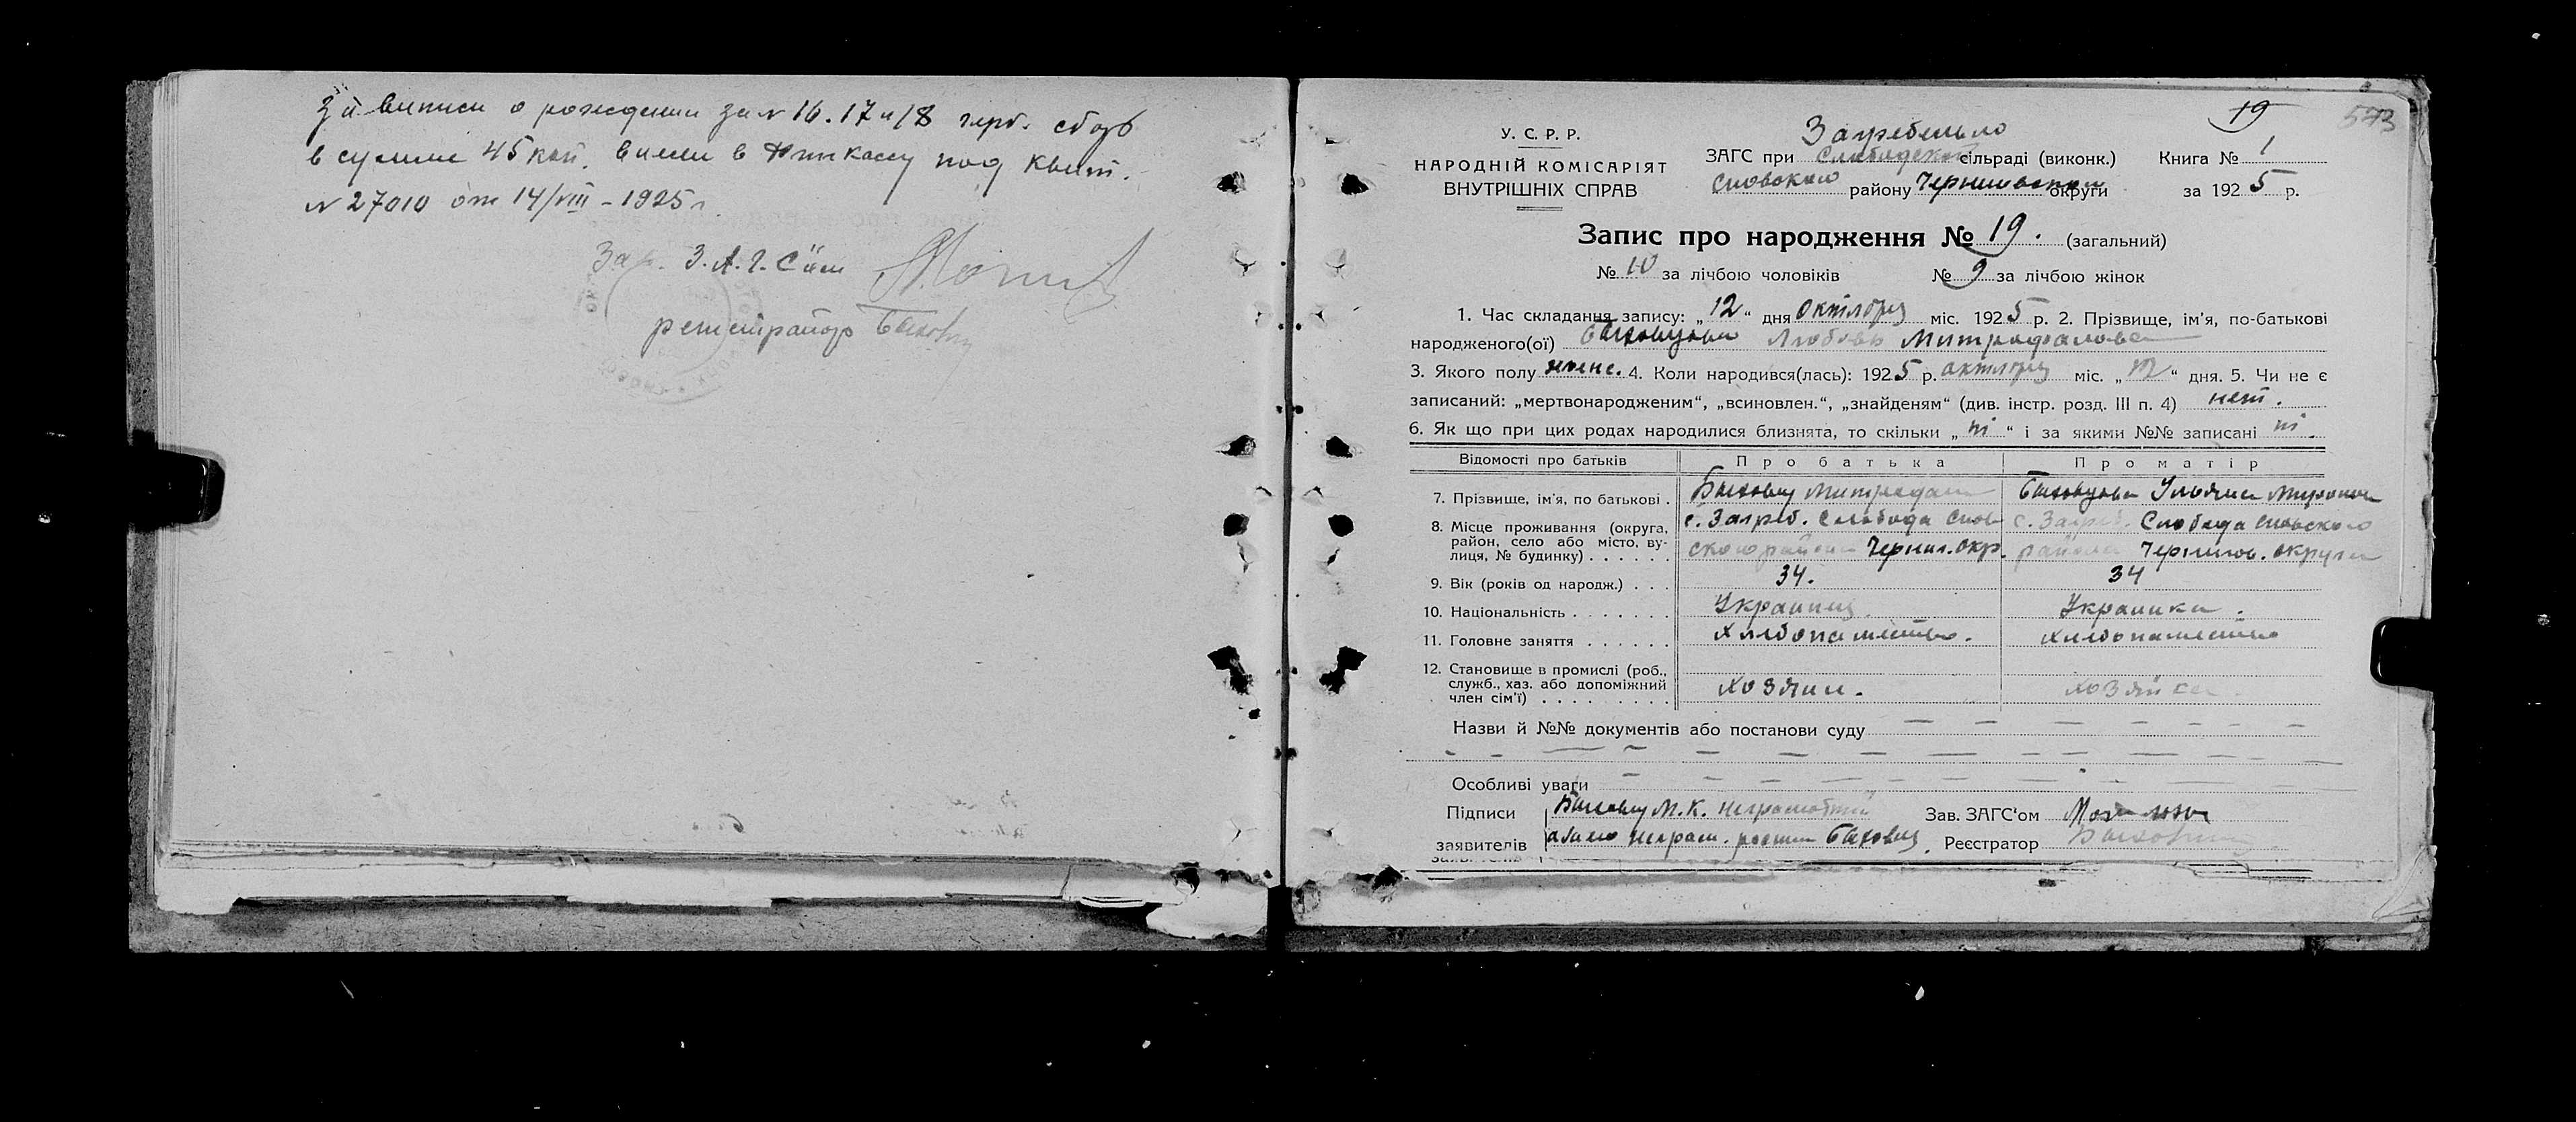 За выписи о рождении за № 16. 17 и 18 герб. сбор
в сумме 45 коп. внесен в кассу под квит.
№ 27010 от 14/VIII – 1925 г.
Зав. З.А.Г.С'ом
регистратор Быховец
19
573
У. С. Р. Р.
НАРОДНІЙ КОМІСАРІЯТ
ВНУТРІШНІХ СПРАВ
Загребельно
ЗАГС при Слободской сільраді (виконк.) Книга № 1
Сновского району Черниговской округи за 1925 р.
Запис про народження № 19. (загальний)
№ 10 за лічбою чоловіків № 9 за лічбою жінок
1. Час складання запису: „12“ дня октября міс. 1925 р. 2. Прізвище, ім'я, по-батькові
народженого(ої) Быховцова Любовь Митрофанова
3. Якого полу женс. 4. Коли народився(лась): 1925 р. октября міс. „ “ дня. 5. Чи не є
записаний: „мертвонародженим“, „всиновлен.“, „знайденям“ (див. інстр. розд. III п. 4) нет.
6. Як що при цих родах народилися близнята, то скільки „ні“ і за якими №№ записані ні.
Відомості про батьків Про батька Про матір
7. Прізвище, ім'я, по батькові . Быховец Митрофан Быховцова Ульяна
8. Місце проживання (округа, с. Загреб. Слобода Снов- с. Загреб. Слобода Сновского
район, село або місто, ву-
лиця, № будинку) . . . . . . ского района Черниг. окр. района Чернигов. округи
9. Вік (років од народж.) . . . 34. 34
10. Національність . . . . . . . Украинец. Украинка.
11. Головне заняття . . . . . . Хлебопашество. Хлебопашество
12. Становище в промислі (роб.,
служб., хаз. або допоміжний
член сім'ї) . . . . . . . . . Хозяин. Хозяйка
Назви й №№ документів або постанови суду
Особливі уваги
Підписи Быховец М. К. неграмотный Зав. ЗАГС'ом
заявителів а за него неграм. росписи Быховец. Реєстратор Быховец